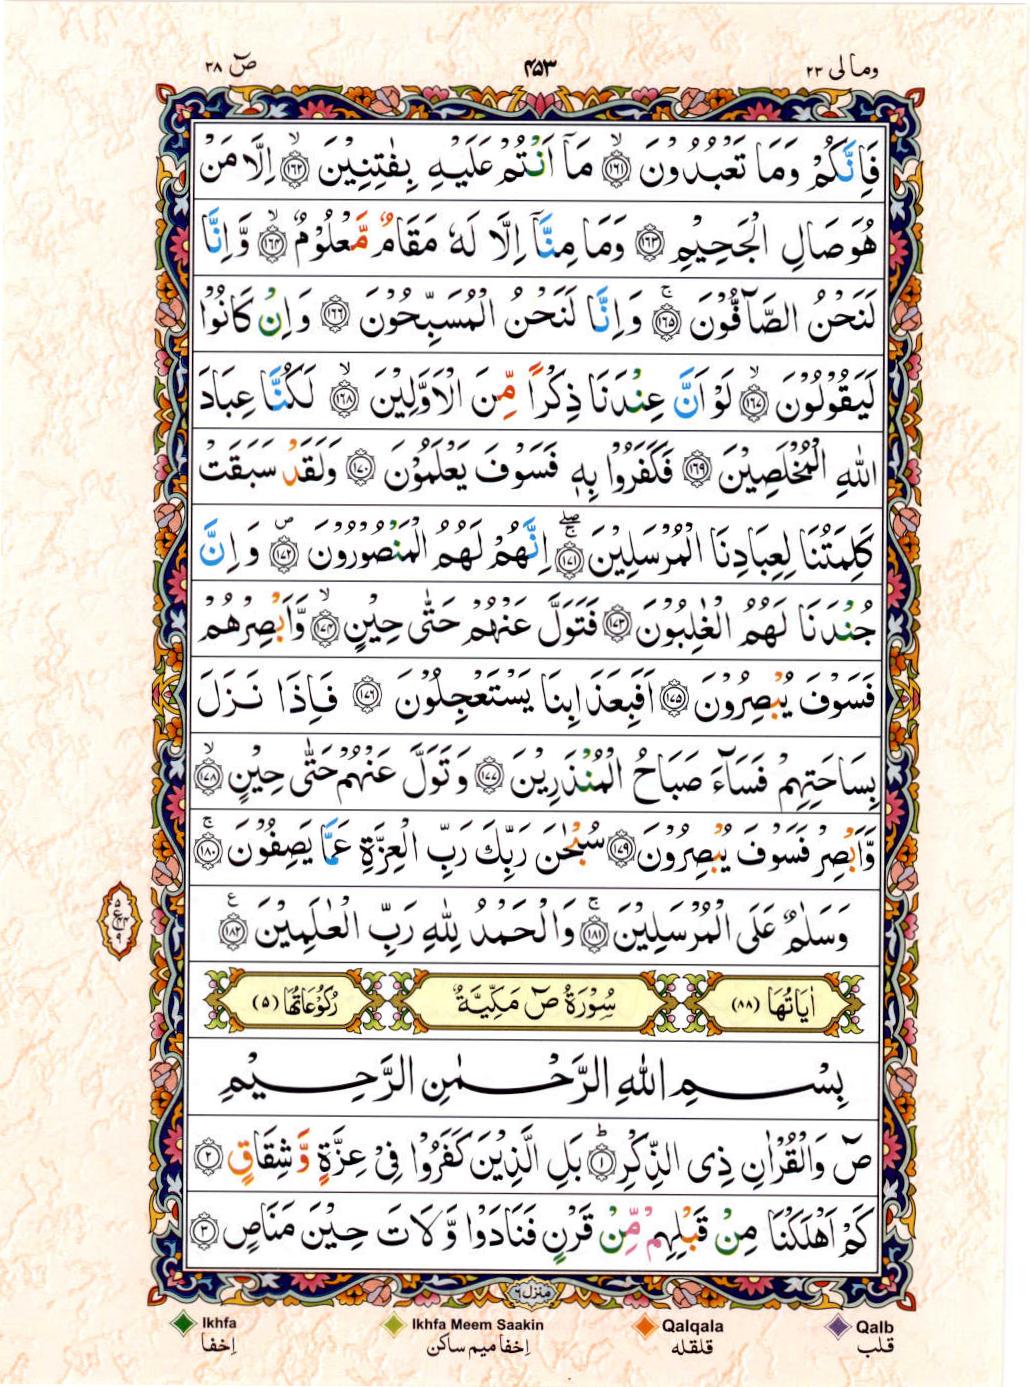 وما لی ۲۳
۴۵۳
صٓ ۳۸
فَاِنَّكُمْ وَمَا تَعْبُدُوْنَ ۙ﴿۱۶۱﴾ مَاۤ اَنْتُمْ عَلَيْهِ بِفٰتِنِيْنَ ۙ﴿۱۶۲﴾ اِلَّا مَنْ
هُوَ صَالِ الْجَحِيْمِ ﴿۱۶۳﴾ وَمَا مِنَّاۤ اِلَّا لَهٗ مَقَامٌ مَّعْلُوْمٌ ۙ﴿۱۶۴﴾ وَّاِنَّا
لَنَحْنُ الصَّآفُّوْنَ ۚ﴿۱۶۵﴾ وَاِنَّا لَنَحْنُ الْمُسَبِّحُوْنَ ﴿۱۶۶﴾ وَاِنْ كَانُوْا
لَيَقُوْلُوْنَ ۙ﴿۱۶۷﴾ لَوْ اَنَّ عِنْدَنَا ذِكْرًا مِّنَ الْاَوَّلِيْنَ ۙ﴿۱۶۸﴾ لَكُنَّا عِبَادَ
اللّٰهِ الْمُخْلَصِيْنَ ﴿۱۶۹﴾ فَكَفَرُوْا بِهٖ فَسَوْفَ يَعْلَمُوْنَ ﴿۱۷۰﴾ وَلَقَدْ سَبَقَتْ
كَلِمَتُنَا لِعِبَادِنَا الْمُرْسَلِيْنَ ۚۖ﴿۱۷۱﴾ اِنَّهُمْ لَهُمُ الْمَنْصُوْرُوْنَ ۪﴿۱۷۲﴾ وَاِنَّ
جُنْدَنَا لَهُمُ الْغٰلِبُوْنَ ﴿۱۷۳﴾ فَتَوَلَّ عَنْهُمْ حَتّٰى حِيْنٍ ۙ﴿۱۷۴﴾ وَّاَبْصِرْهُمْ
فَسَوْفَ يُبْصِرُوْنَ ﴿۱۷۵﴾ اَفَبِعَذَابِنَا يَسْتَعْجِلُوْنَ ﴿۱۷۶﴾ فَاِذَا نَزَلَ
بِسَاحَتِهِمْ فَسَآءَ صَبَاحُ الْمُنْذَرِيْنَ ﴿۱۷۷﴾ وَتَوَلَّ عَنْهُمْ حَتّٰى حِيْنٍ ۙ﴿۱۷۸﴾
وَّاَبْصِرْ فَسَوْفَ يُبْصِرُوْنَ ﴿۱۷۹﴾ سُبْحٰنَ رَبِّكَ رَبِّ الْعِزَّةِ عَمَّا يَصِفُوْنَ ۚ﴿۱۸۰﴾
وَسَلٰمٌ عَلَى الْمُرْسَلِيْنَ ۚ﴿۱۸۱﴾ وَالْحَمْدُ لِلّٰهِ رَبِّ الْعٰلَمِيْنَ ﴿۱۸۲﴾ ع
۵
ع ۴۴
۹
اٰيَاتُهَا (۸۸)
سُوْرَةُ صٓ مَكِّيَّةٌ
رُكُوْعَاتُهَا (۵)
بِسْمِ اللّٰهِ الرَّحْمٰنِ الرَّحِيْمِ
صٓ وَالْقُرْاٰنِ ذِى الذِّكْرِ ؕ﴿۱﴾ بَلِ الَّذِيْنَ كَفَرُوْا فِىْ عِزَّةٍ وَّشِقَاقٍ ﴿۲﴾
كَمْ اَهْلَكْنَا مِنْ قَبْلِهِمْ مِّنْ قَرْنٍ فَنَادَوْا وَّلَاتَ حِيْنَ مَنَاصٍ ﴿۳﴾
منزل ۶
Ikhfa
اِخفا
Ikhfa Meem Saakin
اِخفا میم ساکن
Qalqala
قلقله
Qalb
قلب